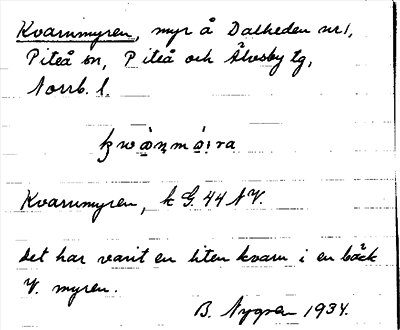 Kvarnmyren, myr å Dalheden nr 1,
Piteå sn, Piteå och Älvsby tg,
Norrb. l.
Kvarnmyren, k G. 44 N V.
det har varit en liten kvarn i en bäck
V. myren.
B. Nygren 1934.